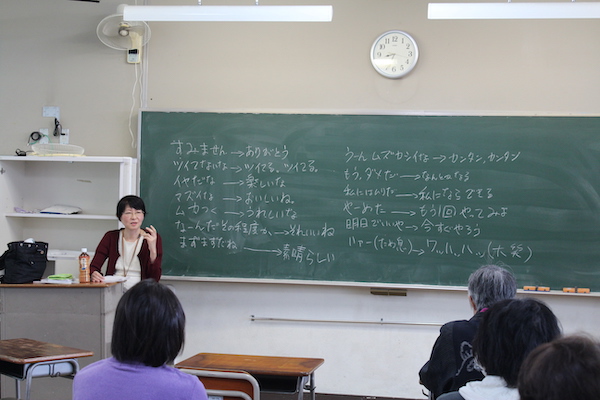 すみません→ありがとう
ツイてないな→ツイてる。ツイてる。
イヤだな→楽しいな
マズイな→おいしいね。
ムカつく→うれしいな
なーんだその程度か、→それいいね
まずまずだね→素晴らしい
うーん ムズカシイな→カンタン、カンタン
もう、ダメだ→なんとかなる
私にはムリだ→私にならできる
やーめた→もう1回やってみよ
明日でいいや→今すぐやろう
ハァー(ため息)→ワッハッハッ(大笑)